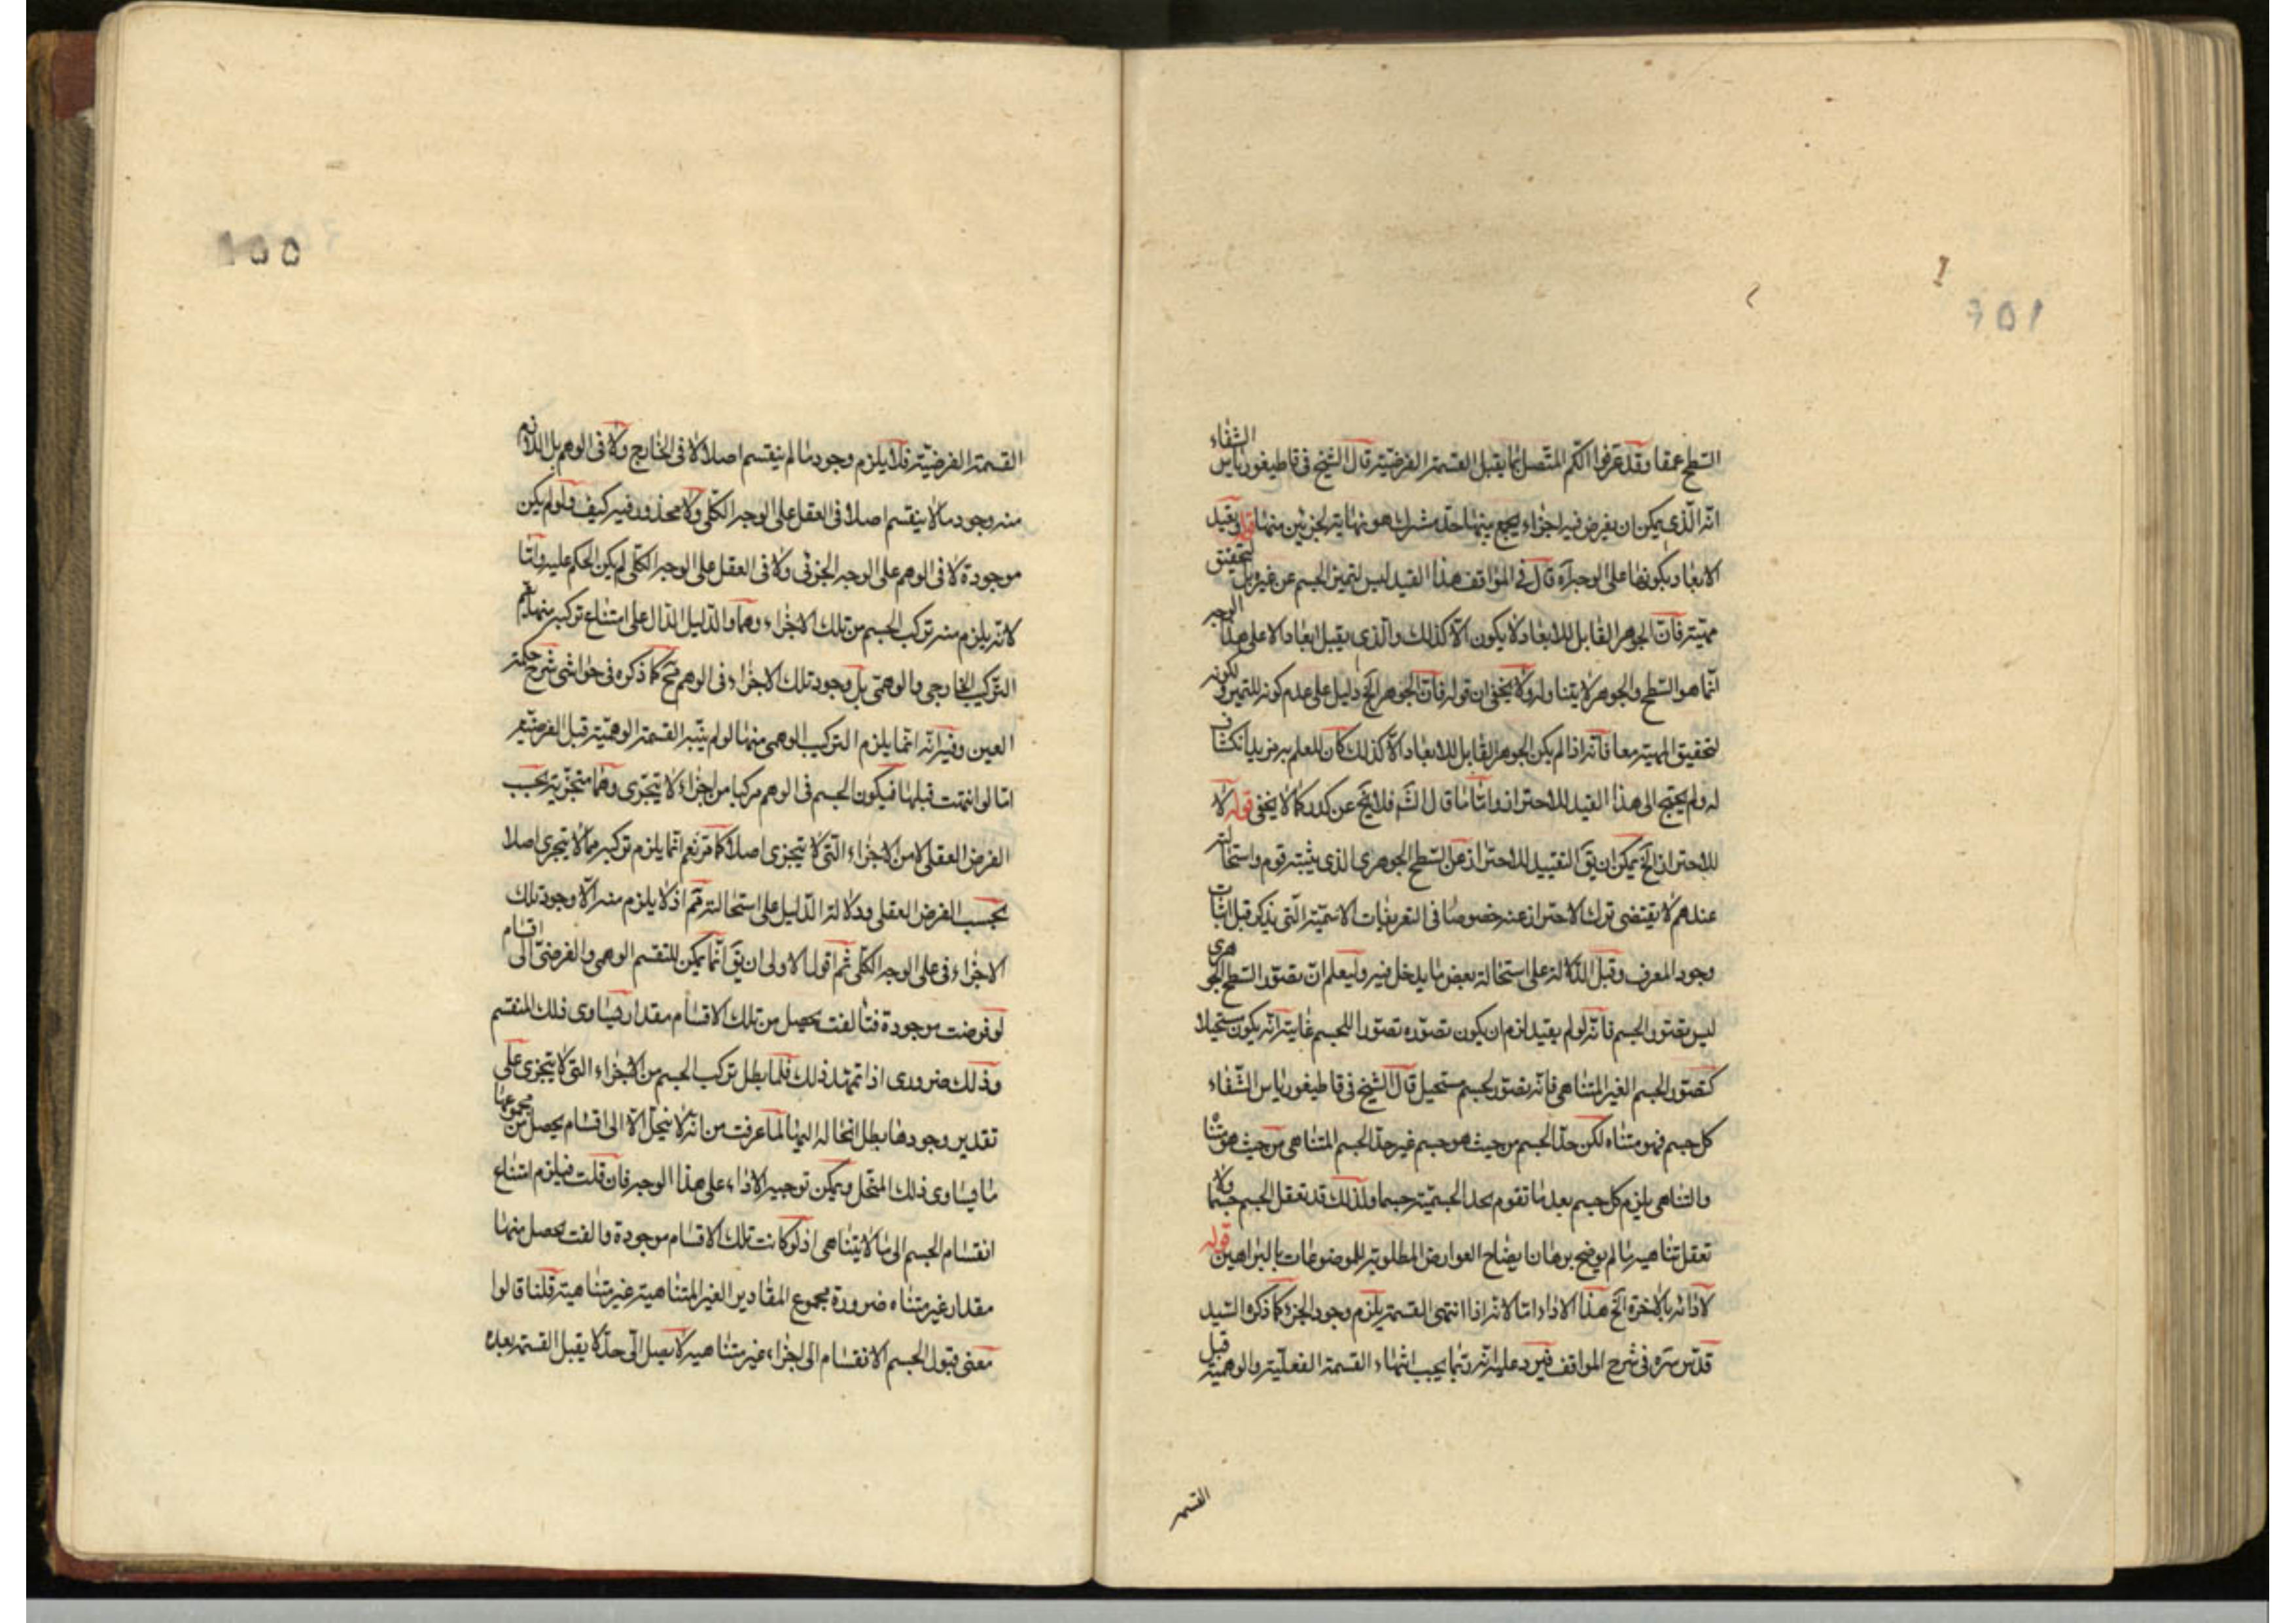 السطح عمقا وقد عرفوا الكم المتصل بما يقبل القسمة الفرضية قال الشيخ في قاطيغورياس الشفاء
انه الذي يمكن ان يفرض فيه اجزاء يجمع بينها حد مشترك هو نهاية لجزئين منها قوله وتقييد
الابعاد بكونها على الوجه آه قال في المواقف هذا القيد ليس لتميز الجسم عن غيره بل لتحقيق
مهيته فان الجوهر القابل للابعاد لا يكون الا كذلك والذي يقبل ابعادا لا على هذا الوجه
انما هو السطح والجوهر لا يتناوله ولا يخفى ان قوله فان الجوهر الخ دليل على عدم كونه للتميز ولكونه
لتحقيق المهية معا فانه اذا لم يكن الجوهر القابل للابعاد الا كذلك كان للعلم به مزيد انكشاف
له ولم يحتج الى هذا القيد للاحتراز واما ما قال الشم فلا يخ عن كدر كما لا يخفى قوله لا
للاحتراز الخ يمكن ان يق التقييد للاحتراز عن السطح الجوهري الذي يثبته قوم واستحالته
عندهم لا يقتضي ترك الاحتراز عنه خصوصا في التعريفات الاسمية التي يذكر قبل اثبات
وجود المعرف وقبل الدلالة على استحالة بعض ما يدخل فيه وليعلم ان تصور السطح الجوهري
ليس تصور الجسم فانه لو لم يقيد لزم ان يكون تصوره تصورا للجسم غايته انه يكون مستحيلا
كتصور الجسم الغير المتناهي فانه تصور لجسم مستحيل قال الشيخ في قاطيغورياس الشفاء
كل جسم فهو متناه لكن حد الجسم من حيث هو جسم غير حد الجسم المتناهي من حيث هو متناه
والتناهي يلزم كل جسم بعد ما تقوم بحد الجسمية جسما ولذلك قد تعقل الجسم جسما ولا
تعقل تناهيه ما لم يوضح برهان ايضاح العوارض المطلوبة للموضوعات بالبراهين قوله
لاذائه بالاخرة الخ هذا الاداء اما لانه اذا انتهى القسمة يلزم وجود الجزء كما ذكره السيد
قدس سره في شرح المواقف فيرد عليه انه ربما يجب انتهاء القسمة الفعلية والوهمية قبل
القسمة
القسمة الفرضية فلا يلزم وجود ما لم ينقسم اصلا لا في الخارج ولا في الوهم بل اللازم
منه وجود ما لا ينقسم اصلا في العقل على الوجه الكلي ولا محذور فيه كيف ولو لم يكن
موجودة لا في الوهم على الوجه الجزئي ولا في العقل على الوجه الكلي لم يكن الحكم عليه واما
لانه يلزم منه تركب الجسم من تلك الاجزاء وهما والدليل الدال على امتناع تركبه منها
التركيب الخارجي والوهمي بل وجود تلك الاجزاء في الوهم مح كما ذكره في حواشي شرح حكمة
العين وفيه انه انما يلزم التركيب الوهمي منها لو لم ينته القسمة الوهمية قبل الفرضية
اما لو انتهت قبلها فيكون الجسم في الوهم مركبا من اجزاء لا يتجزى وهما متجزية بحسب
الفرض العقلي لا من الاجزاء التي لا يتجزى اصلا كما مر نعم انما يلزم تركبه مما لا يتجزى اصلا
بحسب الفرض العقلي ودلالة الدليل على استحالته مم اذ لا يلزم منه الا وجود تلك
الاجزاء في على الوجه الكلي ثم اقول الاولى ان يق انما يمكن للتقسم الوهمي والفرضي الى اقسام
لو فرضت موجودة فتالفت يحصل من تلك الاقسام مقدار يساوي ذلك المنقسم
وذلك ضروري اذا تمهد ذلك فلما بطل تركب الجسم من الاجزاء التي لا يتجزى على
تقدير وجودها بطل انحاله اليها لما عرفت من انه لا ينحل الا الى اقسام يحصل من مجموعها
ما يساوي ذلك المنحل ويمكن توجيه الاداء على هذا الوجه فان قلت فيلزم امتناع
انقسام الجسم الى ما لا يتناهى اذ لو كانت تلك الاقسام موجودة والفت يحصل منها
مقدار غير متناه ضرورة مجموع المقادير الغير المتناهية غير متناهية قلنا قالوا
معنى قبول الجسم الانقسام الى اجزاء غير متناهية لا يصل الى حد لا يقبل القسمة بعده